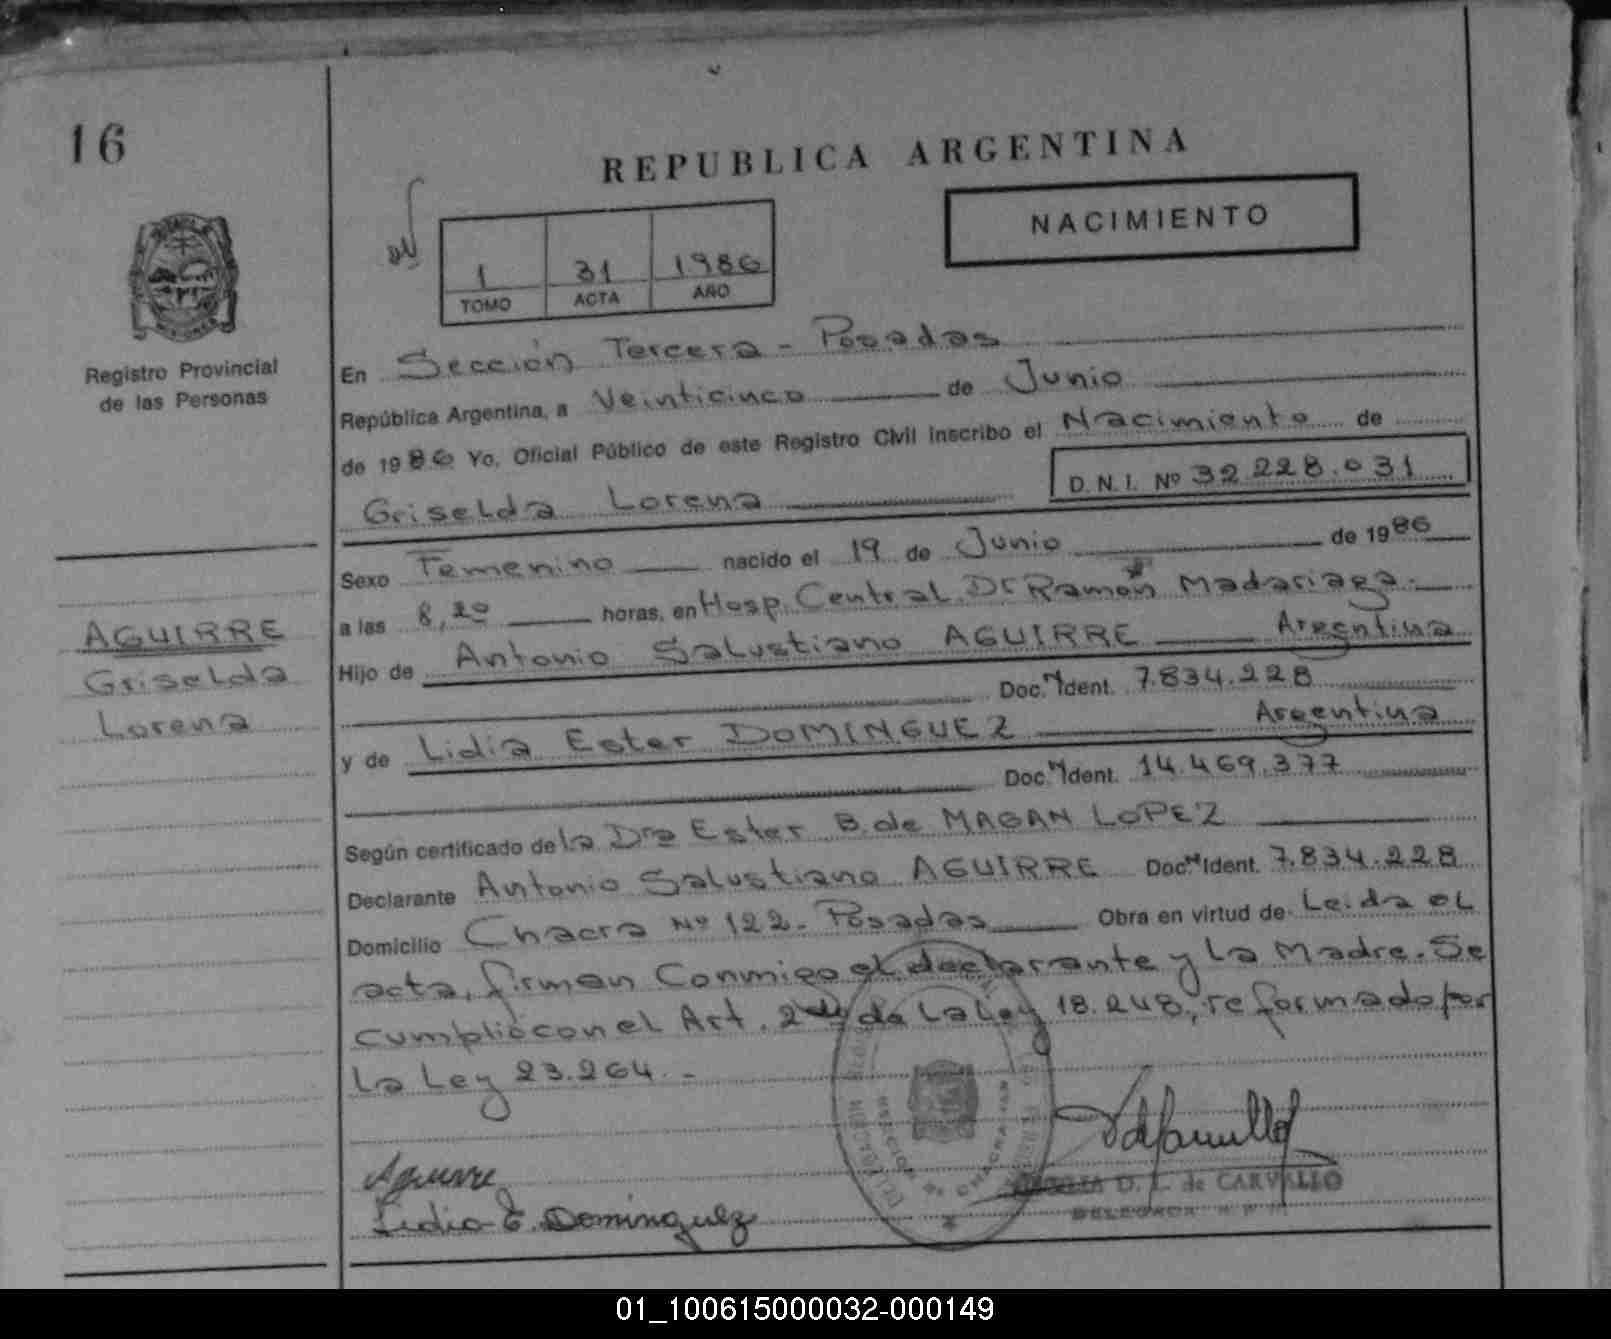 16
REPUBLICA ARGENTINA
NACIMIENTO
1 31 1986
TOMO ACTA AÑO
Registro Provincial
de las Personas
En Sección Tercera - Posadas
República Argentina, a Veinticinco de Junio
de 1986 Yo, Oficial Público de este Registro Civil inscribo el Nacimiento de
Griselda Lorena D.N.I. Nº 32.228.031
Sexo Femenino nacido el 19 de Junio de 1986
a las 8,20 horas, en Hosp. Central Dr Ramón Madariaga.
Hijo de Antonio Salustiano AGUIRRE Argentina
Doc. Ident. 7.834.228
y de Lidia Ester DOMINGUEZ Argentina
Doc. Ident. 14.469.377
Según certificado de la Dra Ester B. de MAGAN LOPEZ
Declarante Antonio Salustiano AGUIRRE Doc. Ident. 7.834.228
Domicilio Chacra Nº 122 - Posadas Obra en virtud de Leida el
acta, firman Conmigo el declarante y la Madre. Se
cumplió con el Art. 2 de la Ley 18.248, reformado por
la Ley 23.264. -
AGUIRRE
Griselda
Lorena
Aguirre
Lidia E. Dominguez
D. L. de CARVALLO
DELEGADA
01_100615000032-000149